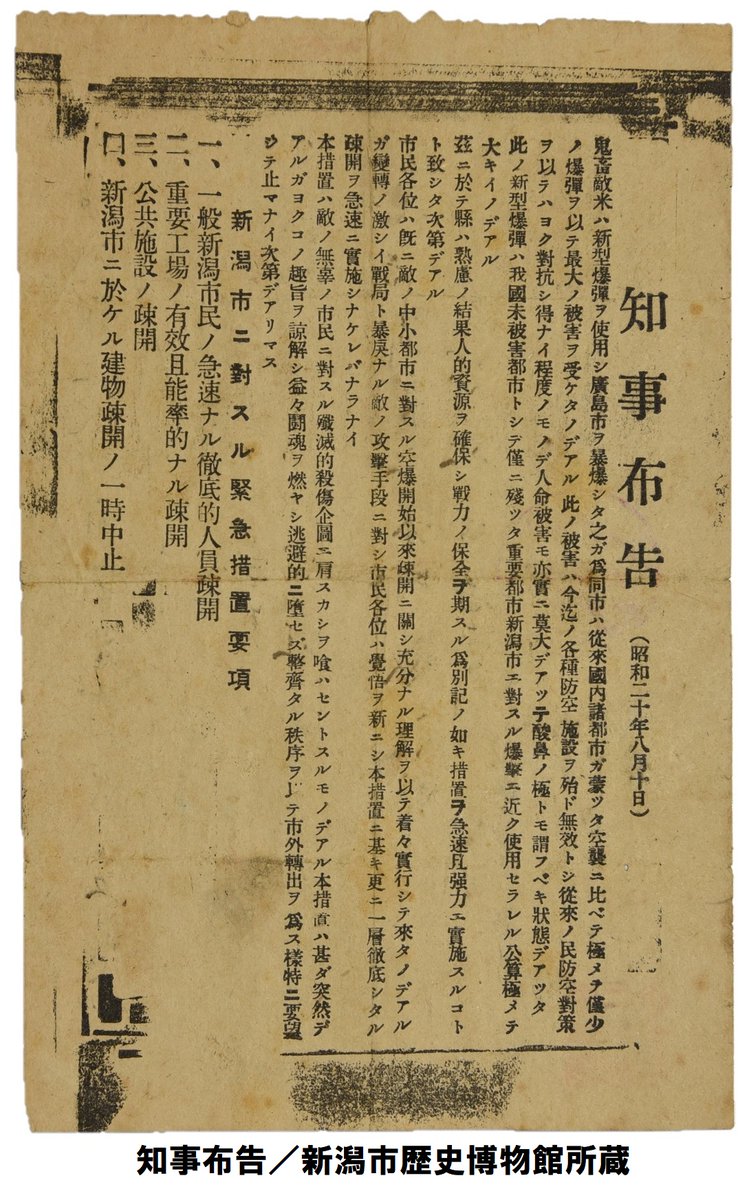 知事布告
(昭和二十年八月十日)
鬼畜敵米ハ新型爆彈ヲ使用シ廣島市ヲ暴爆シタ之ガ爲同市ハ從來國內諸都市ガ蒙ツタ空襲ニ比ベテ極メテ僅少
ノ爆彈ヲ以テ最大ノ被害ヲ受ケタノデアル 此ノ被害ハ今迄ノ各種防空施設ヲ殆ド無效トシ從來ノ民防空對策
ヲ以テハヨク對抗シ得ナイ程度ノモノデ人命被害モ亦實ニ莫大デアツテ酸鼻ノ極トモ謂フベキ狀態デアツタ
此ノ新型爆彈ハ我國未被害都市トシテ僅ニ殘ツタ重要都市新潟市ニ對スル爆擊ニ近ク使用セラレル公算極メテ
大キイノデアル
茲ニ於テ縣ハ熟慮ノ結果人的資源ヲ確保シ戰力ノ保全ヲ期スル爲別記ノ如キ措置ヲ急速且强力ニ實施スルコト
ト致シタ次第デアル
市民各位ハ旣ニ敵ノ中小都市ニ對スル空爆開始以來疎開ニ關シ充分ナル理解ヲ以テ着々實行シテ來タノデアル
ガ變轉ノ激シイ戰局ト暴戾ナル敵ノ攻擊手段ニ對シ市民各位ハ覺悟ヲ新ニシ本措置ニ基キ更ニ一層徹底シタル
疎開ヲ急速ニ實施シナケレバナラナイ
本措置ハ敵ノ無辜ノ市民ニ對スル殲滅的殺傷企圖ニ肩スカシヲ喰ハセントスルモノデアル本措置ハ甚ダ突然デ
アルガヨクコノ趣旨ヲ諒解シ益々鬪魂ヲ燃ヤシ逃避的ニ墮セズ整齊タル秩序ヲ以テ市外轉出ヲ爲ス樣特ニ要望
シテ止マナイ次第デアリマス
新潟市ニ對スル緊急措置要項
一、一般新潟市民ノ急速ナル徹底的人員疎開
二、重要工場ノ有效且能率的ナル疎開
三、公共施設ノ疎開
口、新潟市ニ於ケル建物疎開ノ一時中止
知事布告／新潟市歴史博物館所蔵